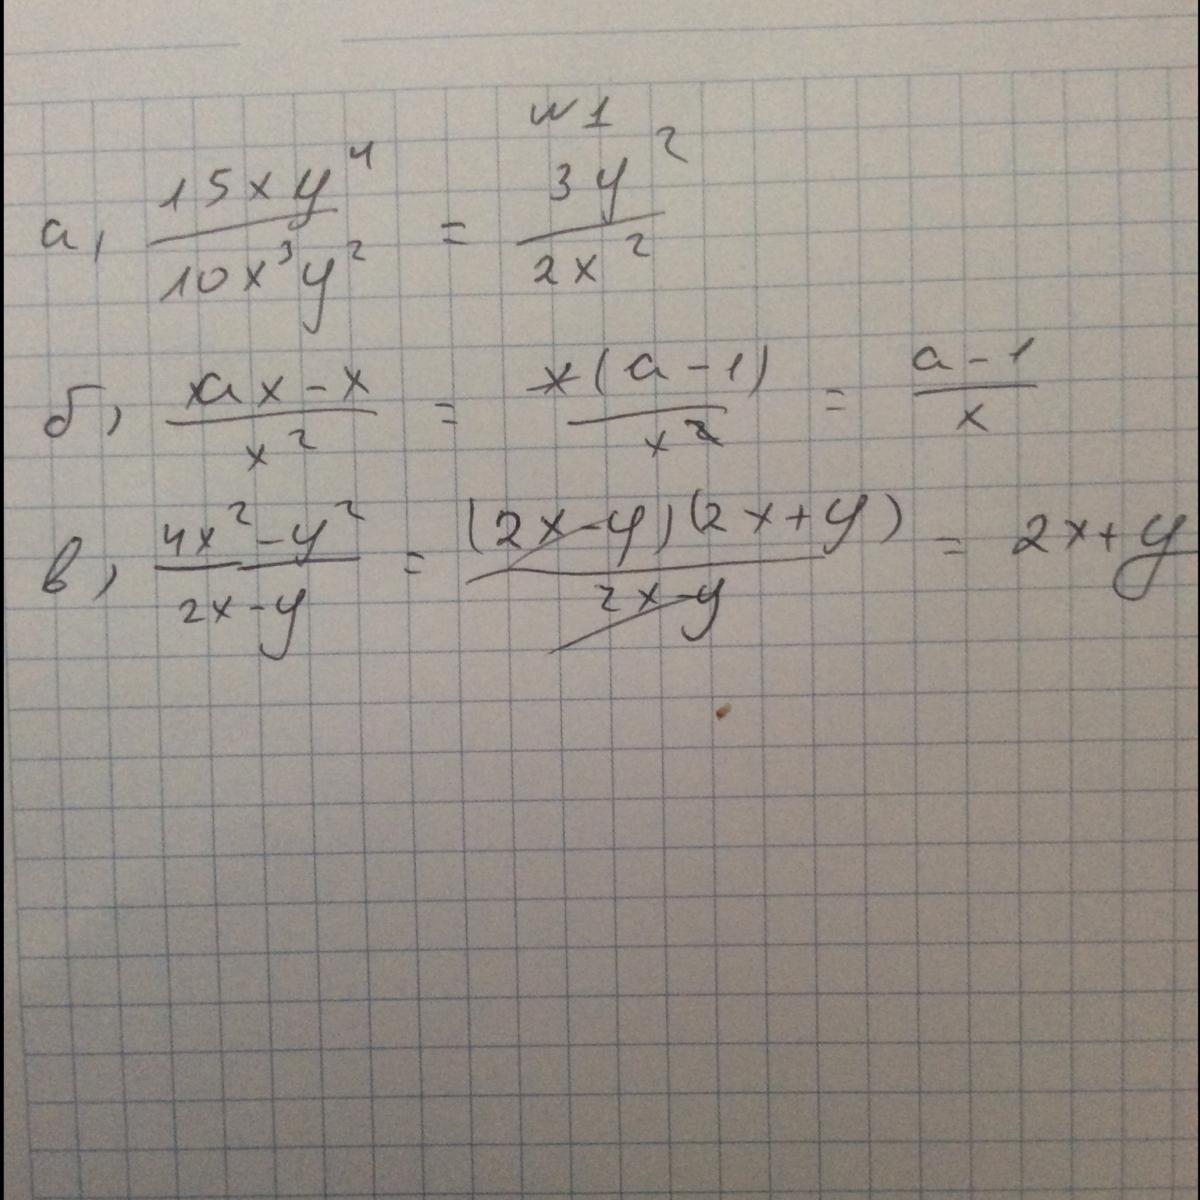 №1
а, 15xy⁴/10x³y² = 3y²/2x²
б, ax-x/x² = x(a-1)/x² = a-1/x
в, 4x²-y²/2x-y = (2x-y)(2x+y)/2x-y = 2x+y